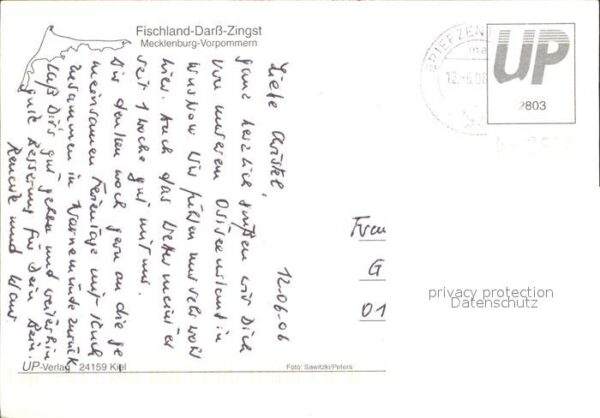 Fischland-Darß-Zingst
Mecklenburg-Vorpommern
12.06.06
Liebe Christel,
ganz herzlich grüßen wir Dich
von unserem Ostseeurlaub in
Wustrow. Wir fühlen uns sehr wohl
hier. Auch das Wetter meint es
seit 1 Woche gut mit uns.
Wir denken noch gern an die ge
meinsamen Ferientage mit Euch
zusammen in Warnemünde zurück
Laß Dir's gut gehen und weiterhin
gute Besserung für Dein Bein.
Renate und
BRIEFZEN
12.-6.06
UP
2803
Frau
G
01
privacy protection
Datenschutz
UP-Verlag 24159 Kiel
Foto: Sawitzki/Peters